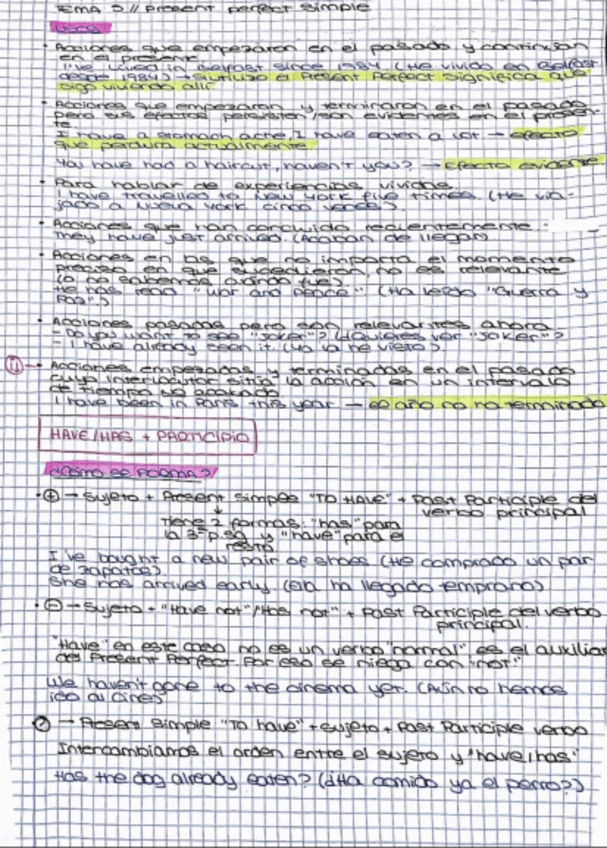 TEMA 5 // Present perfect simple
USOS
· Acciones que empezaron en el pasado y continúan
en el presente
I've lived in Belfast since 1984 (He vivido en Belfast
desde 1984) → Si utilizo el Present Perfect significa que
sigo viviendo allí
· Acciones que empezaron y terminaron en el pasado
pero sus efectos persisten/son evidentes en el presen-
te
I have a stomach ache, I have eaten a lot → efecto
que perdura actualmente
You have had a haircut, haven't you? → efecto evidente
· Para hablar de experiencias vividas
I have travelled to New York five times. (He via-
jado a Nueva York cinco veces)
· Acciones que han concluido recientemente:
They have just arrived. (Acaban de llegar)
· Acciones en las que no importa el momento
preciso en que sucedieron, no es relevante
(o no sabemos cuándo fue)
He has read "War and Peace" (Ha leído "Guerra y
Paz")
· Acciones pasadas pero son relevantes ahora
- Do you want to see "Joker"? (¿Quieres ver "Joker"?
- I have already seen it. (Ya la he visto)
· Acciones empezadas y terminadas en el pasado
cuyo interlocutor sitúa la acción en un intervalo
de tiempo
I have been in Paris this year → ese año no ha terminado
HAVE/HAS + PARTICIPIO
¿CÓMO SE FORMA?
· + → Sujeto + Present Simple "TO HAVE" + Past Participle del
verbo principal
Tiene 2 formas: "has" para
la 3ª p.sg y "have" para el
resto
I've bought a new pair of shoes (He comprado un par
de zapatos)
She has arrived early. (Ella ha llegado temprano)
· - → Sujeto + "Have not"/"Has not" + Past Participle del verbo
principal.
"Have" en este caso no es un verbo "normal" es el auxiliar
del Present Perfect. Por eso se niega con "not"
We haven't gone to the cinema yet. (Aún no hemos
ido al cine)
? → Present Simple "To have" + sujeto + Past Participle verbo
Intercambiamos el orden entre el sujeto y "have/has"
Has the dog already eaten? (¿Ha comido ya el perro?)